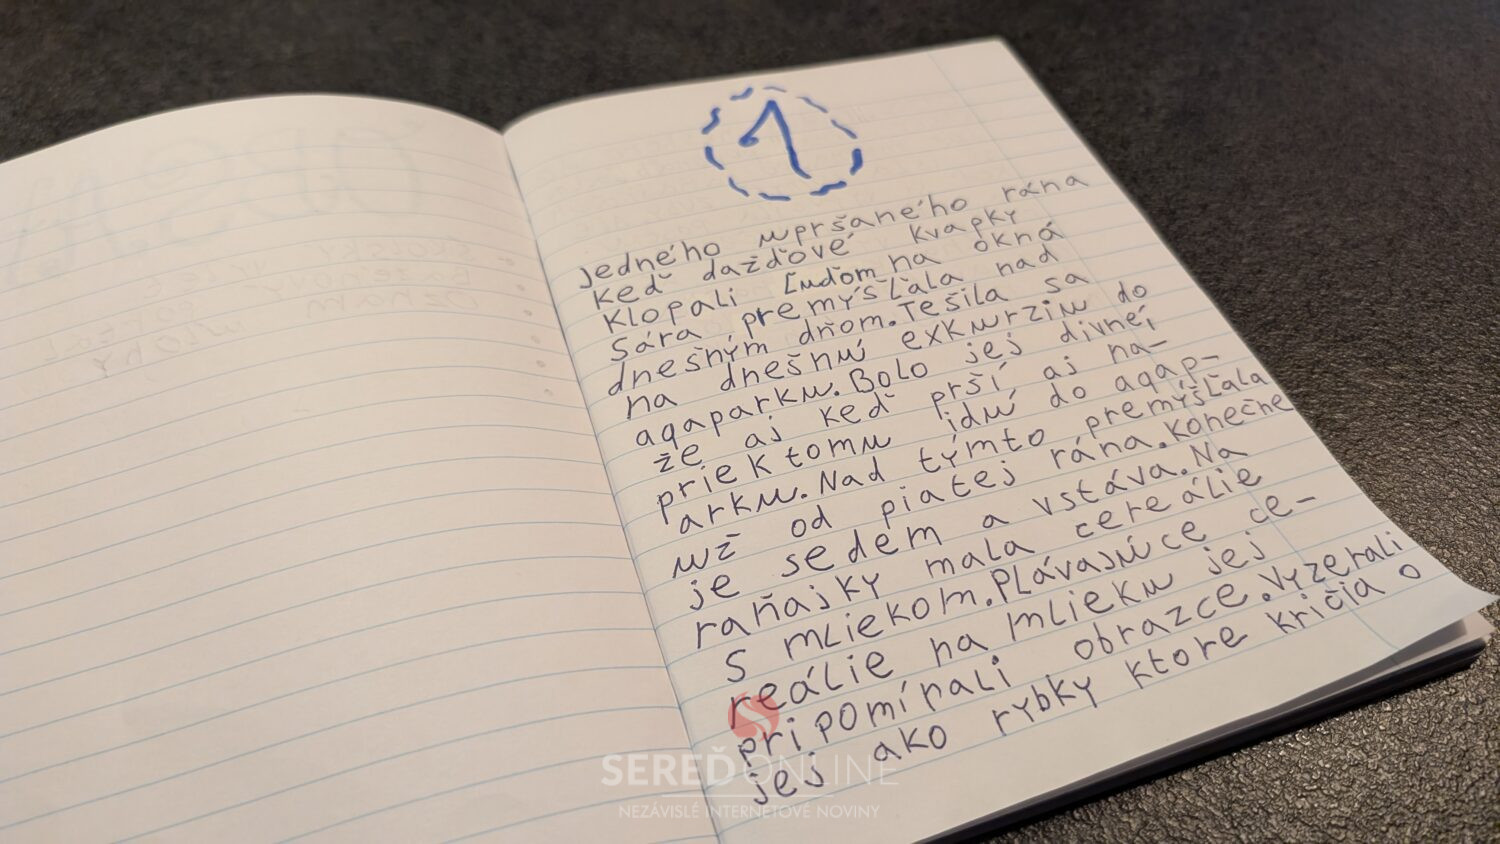 1
Jedného upršaného rána
keď dažďové kvapky
klopali ľuďom na okná
Sára premýšľala nad
dnešným dňom. Tešila sa
na dnešnú exkurziu do
aqaparku. Bolo jej divnei
že aj keď prší aj na-
priek tomu idú do aqap-
arku. Nad týmto premýšľala
už od piatej rána. Konečne
je sedem a vstáva. Na
raňajky mala cereálie
s mliekom. Plávajúce ce-
reálie na mlieku jej
pripomínali obrazce. Vyzerali
jej ako rybky ktore kričia o
SEREĎ ONLINE
NEZÁVISLÉ INTERNETOVÉ NOVINY